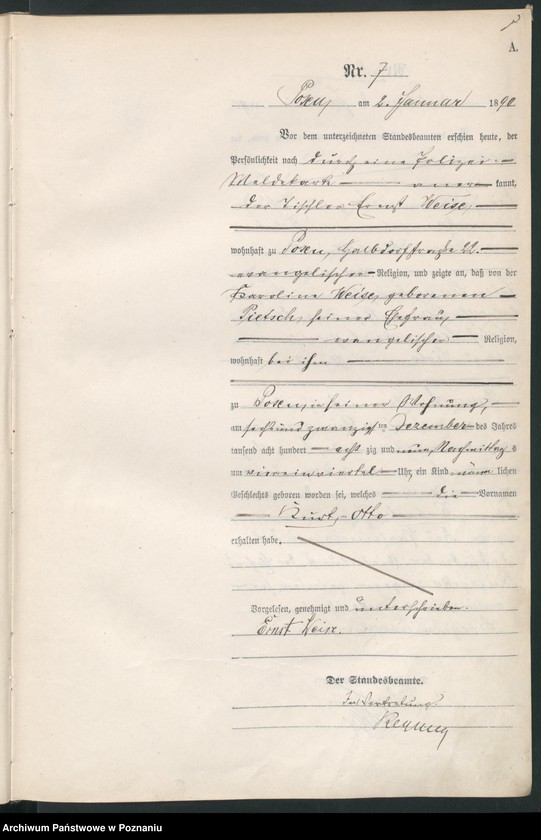 A.
Nr. 7
Posen, am 2. Januar 1890
Vor dem unterzeichneten Standesbeamten erschien heute, der
Persönlichkeit nach durch eine Polizei-
Meldekarte aner kannt,
der Tischler Ernst Weise,
wohnhaft zu Posen, Halbdorfstraße 22.
evangelischer Religion, und zeigte an, daß von der
Karoline Weise, geborenen
Pietsch, seiner Ehefrau,
evangelischer Religion,
wohnhaft bei ihm
zu Posen, in seiner Wohnung,
am sechs und zwanzig ten Dezember des Jahres
tausend acht hundert acht zig und neun, Nachmittag s
um vier ein viertel Uhr, ein Kind männ lichen
Geschlechts geboren worden sei, welches die Vornamen
Kurt, Otto
erhalten habe.
Vorgelesen, genehmigt und unterschrieben.
Ernst Weise.
Der Standesbeamte.
In Vertretung
Archiwum Państwowe w Poznaniu